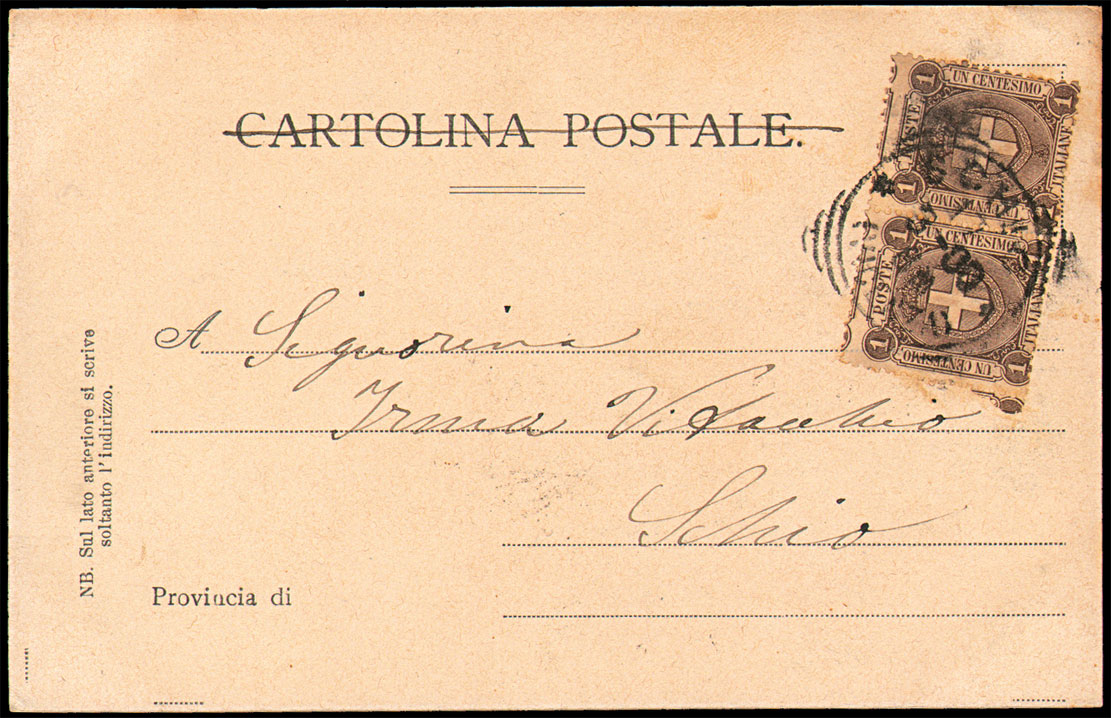 CARTOLINA POSTALE.
1 UN CENTESIMO 1
POSTE
ITALIANE
1 UN CENTESIMO
1 UN CENTESIMO
POSTE
ITALIANE
1 UN CENTESIMO 1
A Signorina
Irma
Schio
Provincia di
NB. Sul lato anteriore si scrive
soltanto l'indirizzo.